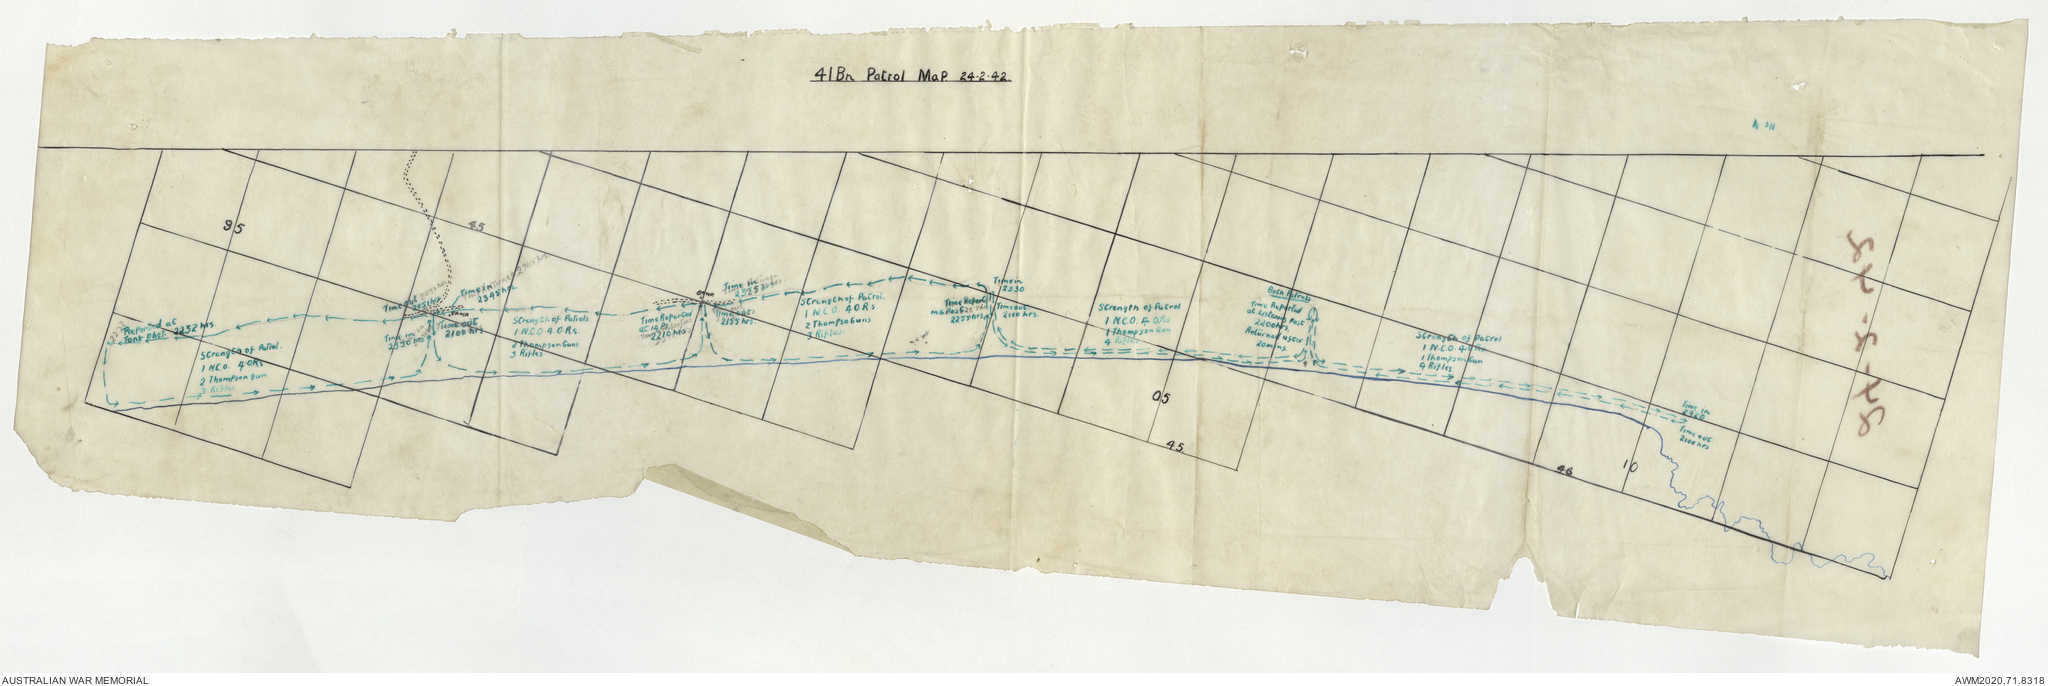 41 Bn Patrol Map 24.2.42.
95
45
Reported at
Tank post. 2252 hrs
Strength of Patrol.
1 N.C.O. 4 O.Rs
2 Thompson Gun
3 Rifles
Time out
Time in
2345 hrs.
Time in
2350 hrs.
Time out
2100 hrs.
Strength of Patrols
1 N.C.O. 4 O.Rs.
2 Thompson Guns
3 Rifles
Time Reported
2210 hrs.
Time in
Time out
2155 hrs.
Strength of Patrol.
1 N.C.O. 4 O.Rs.
2 Thompson Guns
3 Rifles
Time Report
Time in
2330
Time out
2100 hrs.
Strength of Patrol
1 N.C.O. 4 O.Rs
1 Thompson Gun
4 Rifles
Both Patrols
Time Reported
at Listening Post
2200 hrs.
Returned after
20 mins.
Strength of Patrol
1 N.C.O. 4 O.Rs
1 Thompson Gun
4 Rifles
Time in
2320
Time out
2100 hrs
05
45
46
10
AUSTRALIAN WAR MEMORIAL
AWM2020.71.8318